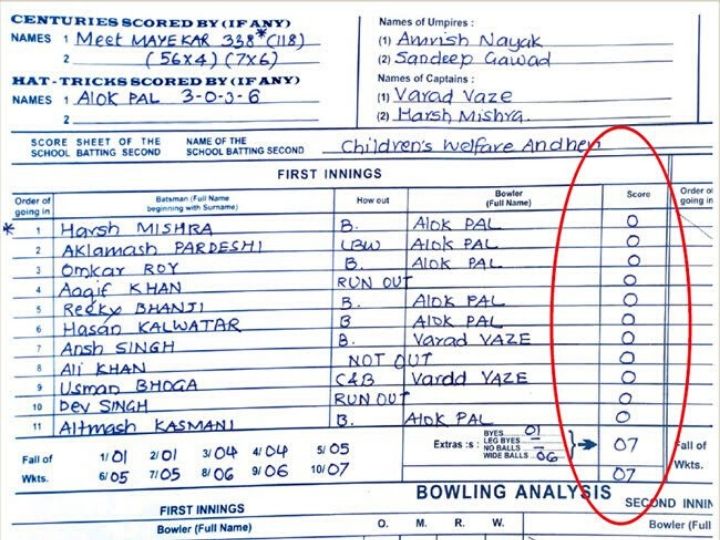 CENTURIES SCORED BY (IF ANY)
NAMES 1 Meet MAYEKAR 338* (118)
2 (56x4) (7x6)
HAT-TRICKS SCORED BY (IF ANY)
NAMES 1 Alok PAL 3-0-3-6
2
Names of Umpires :
(1) Amrish Nayak
(2) Sandeep Gawad
Names of Captains :
(1) Varad Vaze
(2) Harsh Mishra
SCORE SHEET OF THE SCHOOL BATTING SECOND
NAME OF THE SCHOOL BATTING SECOND
Children's Welfare Andheri
FIRST INNINGS
Order of going in Batsman (Full Name beginning with Surname) How out Bowler (Full Name) Score Order of going in
* 1 Harsh MISHRA B. Alok PAL 0
2 Aklamash PARDESHI LBW Alok PAL 0
3 Omkar ROY B. Alok PAL 0
4 Aaqif KHAN RUN OUT 0
5 Reeky BHANJI B. Alok PAL 0
6 Hasan KALWATAR B Alok PAL 0
7 Ansh SINGH B. Varad VAZE 0
8 Ali KHAN NOT OUT 0
9 Usman BHOGA C&B Vardd VAZE 0
10 Dev SINGH RUN OUT 0
11 Altmash KASMANI B. Alok PAL 0
Fall of Wkts. 1/01 2/01 3/04 4/04 5/05
6/05 7/05 8/06 9/06 10/07
Extras :s :
BYES 01
LEG BYES –
NO BALLS –
WIDE BALLS 06
07
07
Fall of Wkts.
BOWLING ANALYSIS
FIRST INNINGS
SECOND INNIN
Bowler (Full Name) O. M. R. W. Bowler (Full